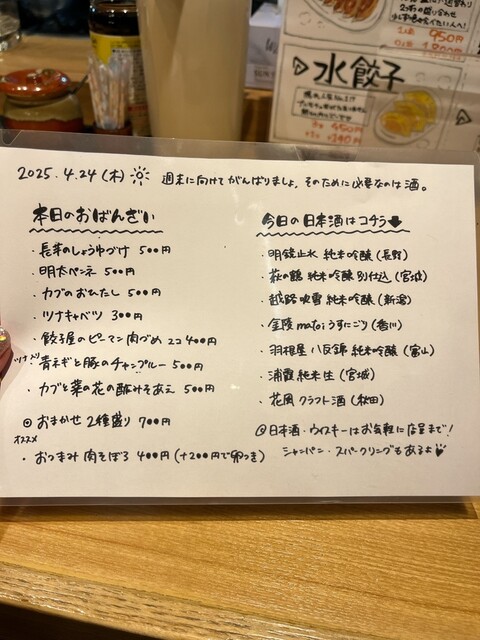 950円
水餃子
450円
2025.4.24(木) 週末に向けてがんばりましょ。そのために必要なのは酒。
本日のおばんざい
・長芋のしょうゆづけ 500円
・明太ペンネ 500円
・カブのおひたし 500円
・ツナキャベツ 300円
・餃子屋のピーマン肉づめ 2コ 400円
ツナ入り
・青ネギと豚のチャンプルー 500円
・カブと菜の花の酢みそあえ 500円
◎ おまかせ 2種盛り 700円
オススメ
・おつまみ 肉そぼろ 400円 (+200円で卵つき)
今日の日本酒はコチラ
・明鏡止水 純米吟醸 (長野)
・萩の鶴 純米吟醸 別仕込 (宮城)
・越路吹雪 純米吟醸 (新潟)
・金陵 matoi うすにごり (香川)
・羽根屋 八反錦 純米吟醸 (富山)
・浦霞 純米生 (宮城)
・花風 クラフト酒 (秋田)
◎日本酒・ウイスキーはお気軽に店員まで!
シャンパン・スパークリングもあるよ